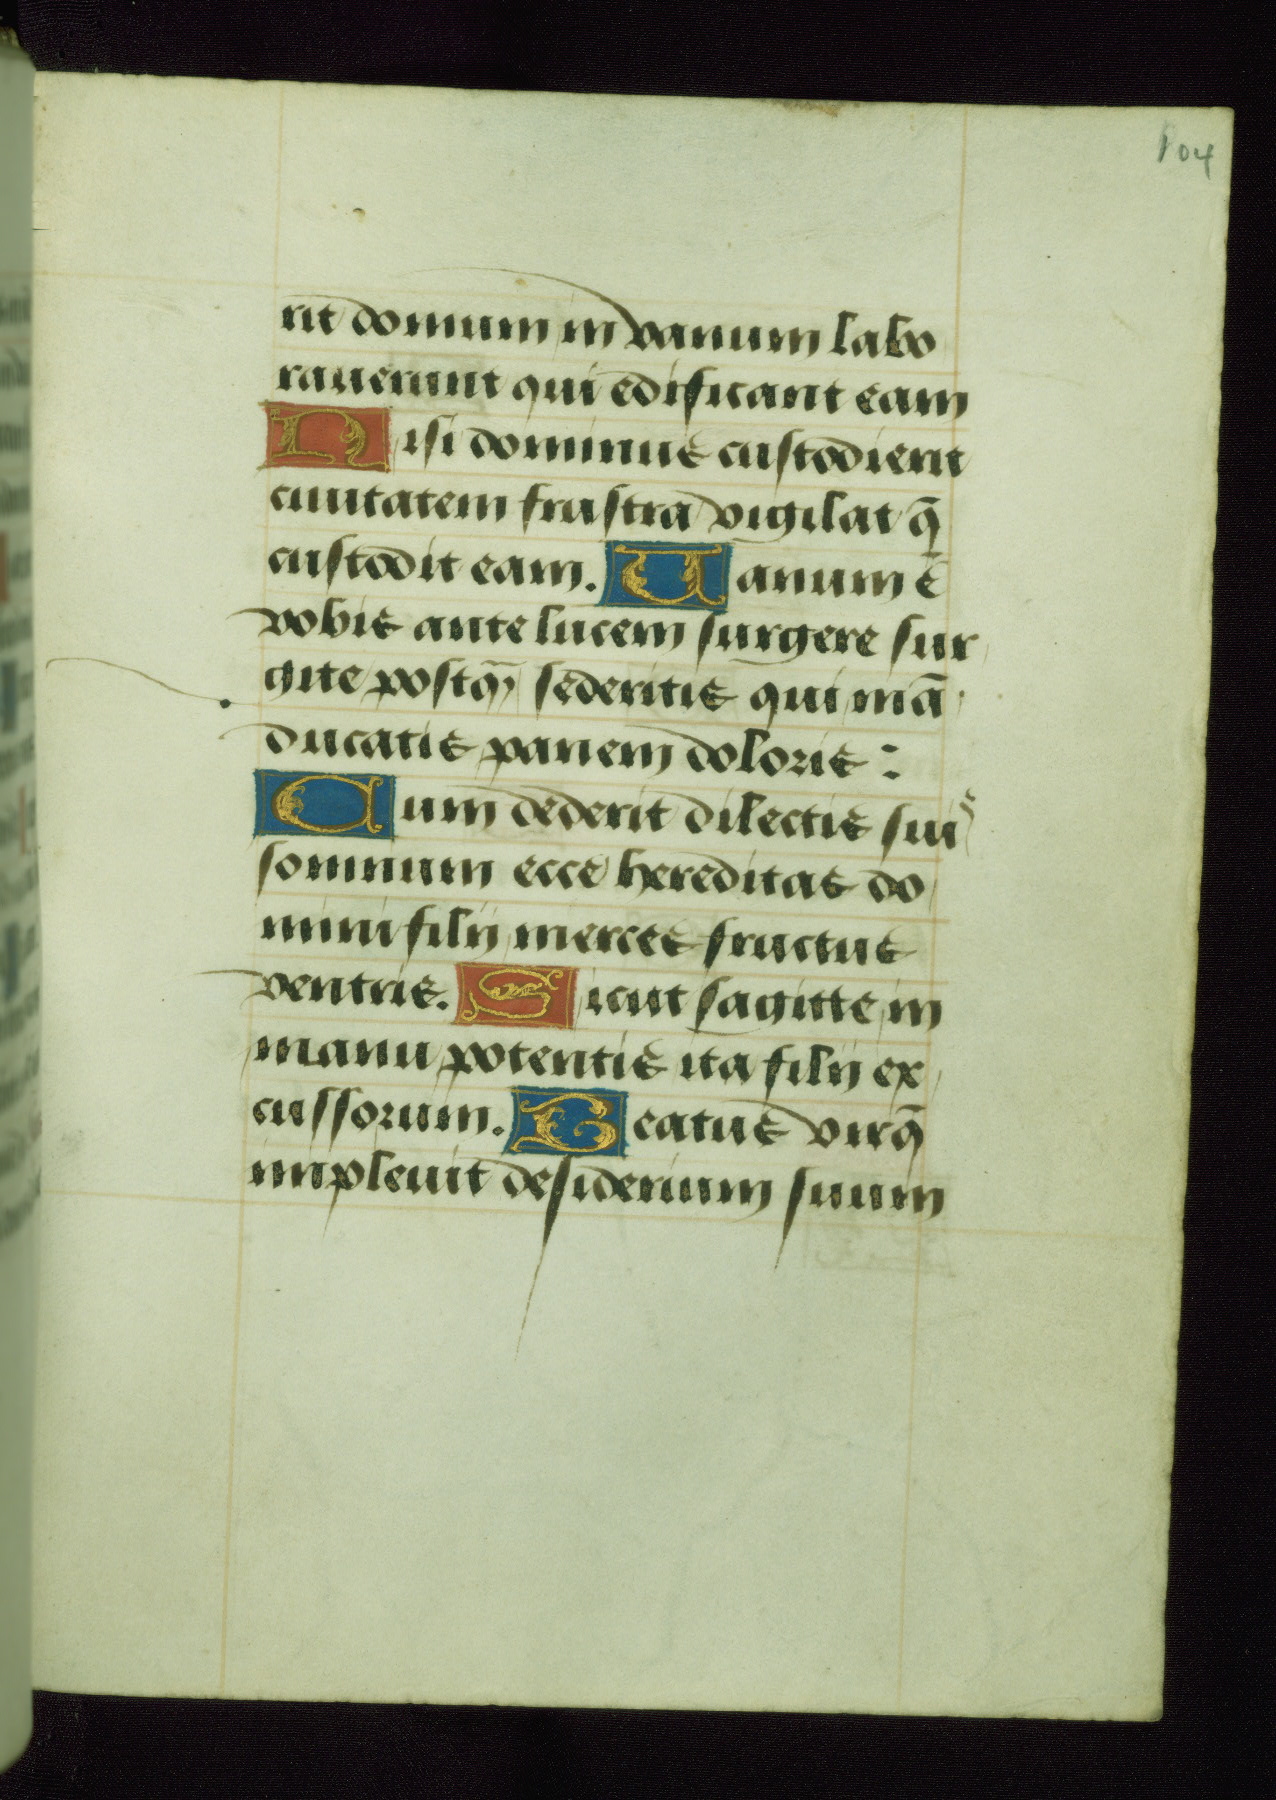 104
rit domum in vanum labo
rauerunt qui edificant eam
Nisi dominus custodierit
ciuitatem frustra vigilat q̄
custodit eam. Uanum ē
vobis ante lucem surgere sur
gite postq̄ sederitis qui mā
ducatis panem doloris :
Cum dederit dilectis suis
somnum ecce hereditas do
mini filij merces fructus
ventris. Sicut sagitte in
manu potentis ita filij ex
cussorum. Beatus vir q̄
impleuit desiderium suum